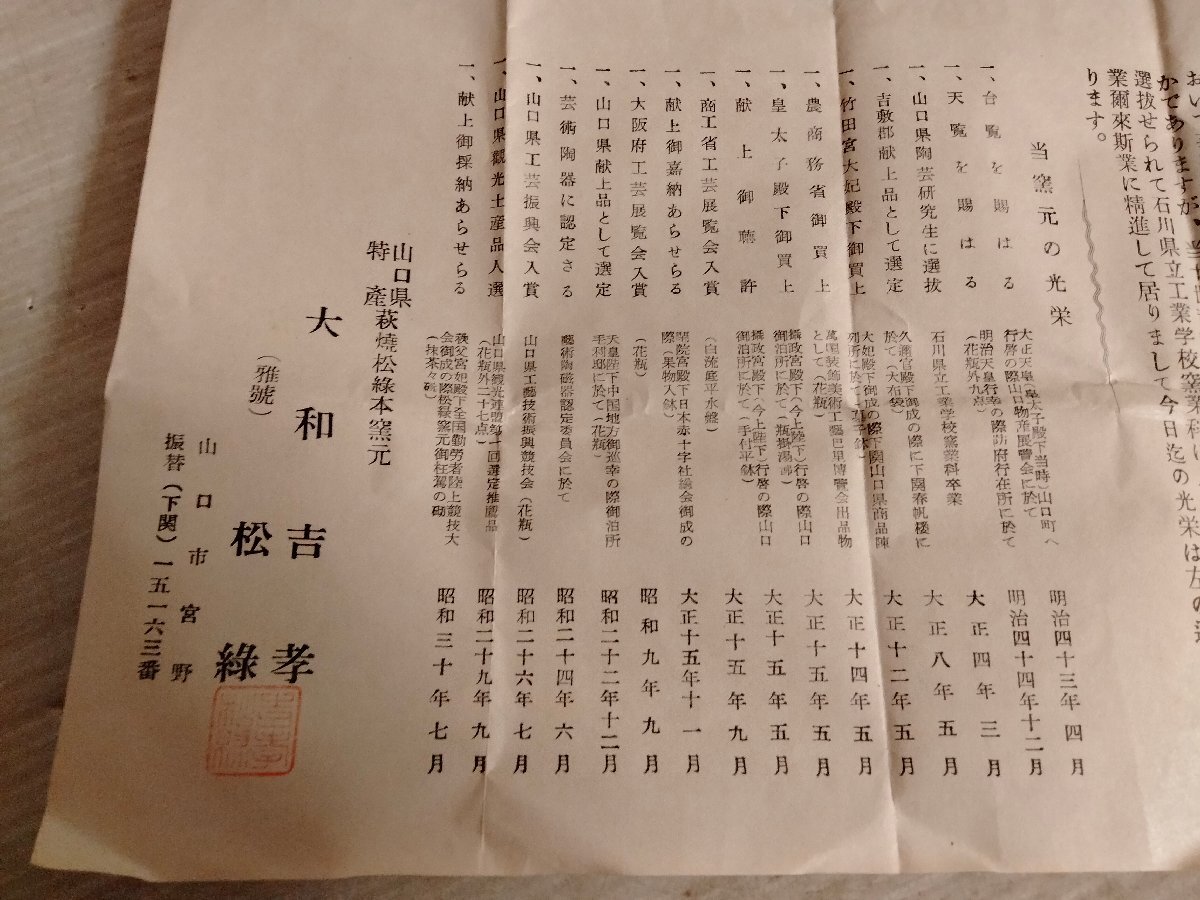 おい
かでありますが、当
選抜せられて石川県立工業学校窯業科に
業爾來斯業に精進して居りまして今日迄の光栄は左の
ります。
当窯元の光栄
一、台覧を賜はる
大正天皇(皇太子殿下当時)山口町へ
行啓の際山口物産展覽会に於て
明治四十三年四月
一、天覧を賜はる
明治天皇行幸の際防府行在所に於て
(花瓶外九点)
明治四十四年十二月
一、山口県陶芸研究生に選抜
石川県立工業学校窯業科卒業
大正四年三月
一、吉敷郡献上品として選定
久邇宮殿下御成の際に下関春帆楼に
於て(大布袋)
大正八年五月
一、竹田宮大妃殿下御買上
大妃殿下御成の際下関山口県商品陳
列所に於て
大正十二年五月
一、農商務省御買上
萬国装飾美術工藝巴里博覽会出品物
として(花瓶)
大正十四年五月
一、皇太子殿下御買上
攝政宮殿下(今上陛下)行啓の際山口
御泊所に於て(瓶掛湯沸)
大正十五年五月
一、献上御聴許
攝政宮殿下(今上陛下)行啓の際山口
御泊所に於て(手付平鉢)
大正十五年五月
一、商工省工芸展覧会入賞
(白流庭平水盤)
大正十五年九月
一、献上御嘉納あらせらる
閑院宮殿下日本赤十字社総会御成の
際(果物入鉢)
大正十五年十一月
一、大阪府工芸展覧会入賞
(花瓶)
昭和九年九月
一、山口県献上品として選定
天皇陛下中国地方御巡幸の際御泊所
毛利邸に於て(花瓶)
昭和二十二年十二月
一、芸術陶器に認定さる
藝術陶磁器認定委員会に於て
昭和二十四年六月
一、山口県工芸振興会入賞
山口県工藝技術振興競技会(花瓶)
昭和二十六年七月
一、山口県観光土産品人選
山口県観光連盟第一回選定推薦品
(花瓶外二十七点)
昭和二十九年九月
一、献上御採納あらせらる
秩父宮妃殿下全国勤労者陸上競技大
会御成の際松緑窯元御枉駕の砌
(抹茶々碗)
昭和三十年七月
山口県
特産
萩燒松緑本窯元
大和吉孝
(雅號)松綠
山口市宮野
振替(下関)一五一六三番